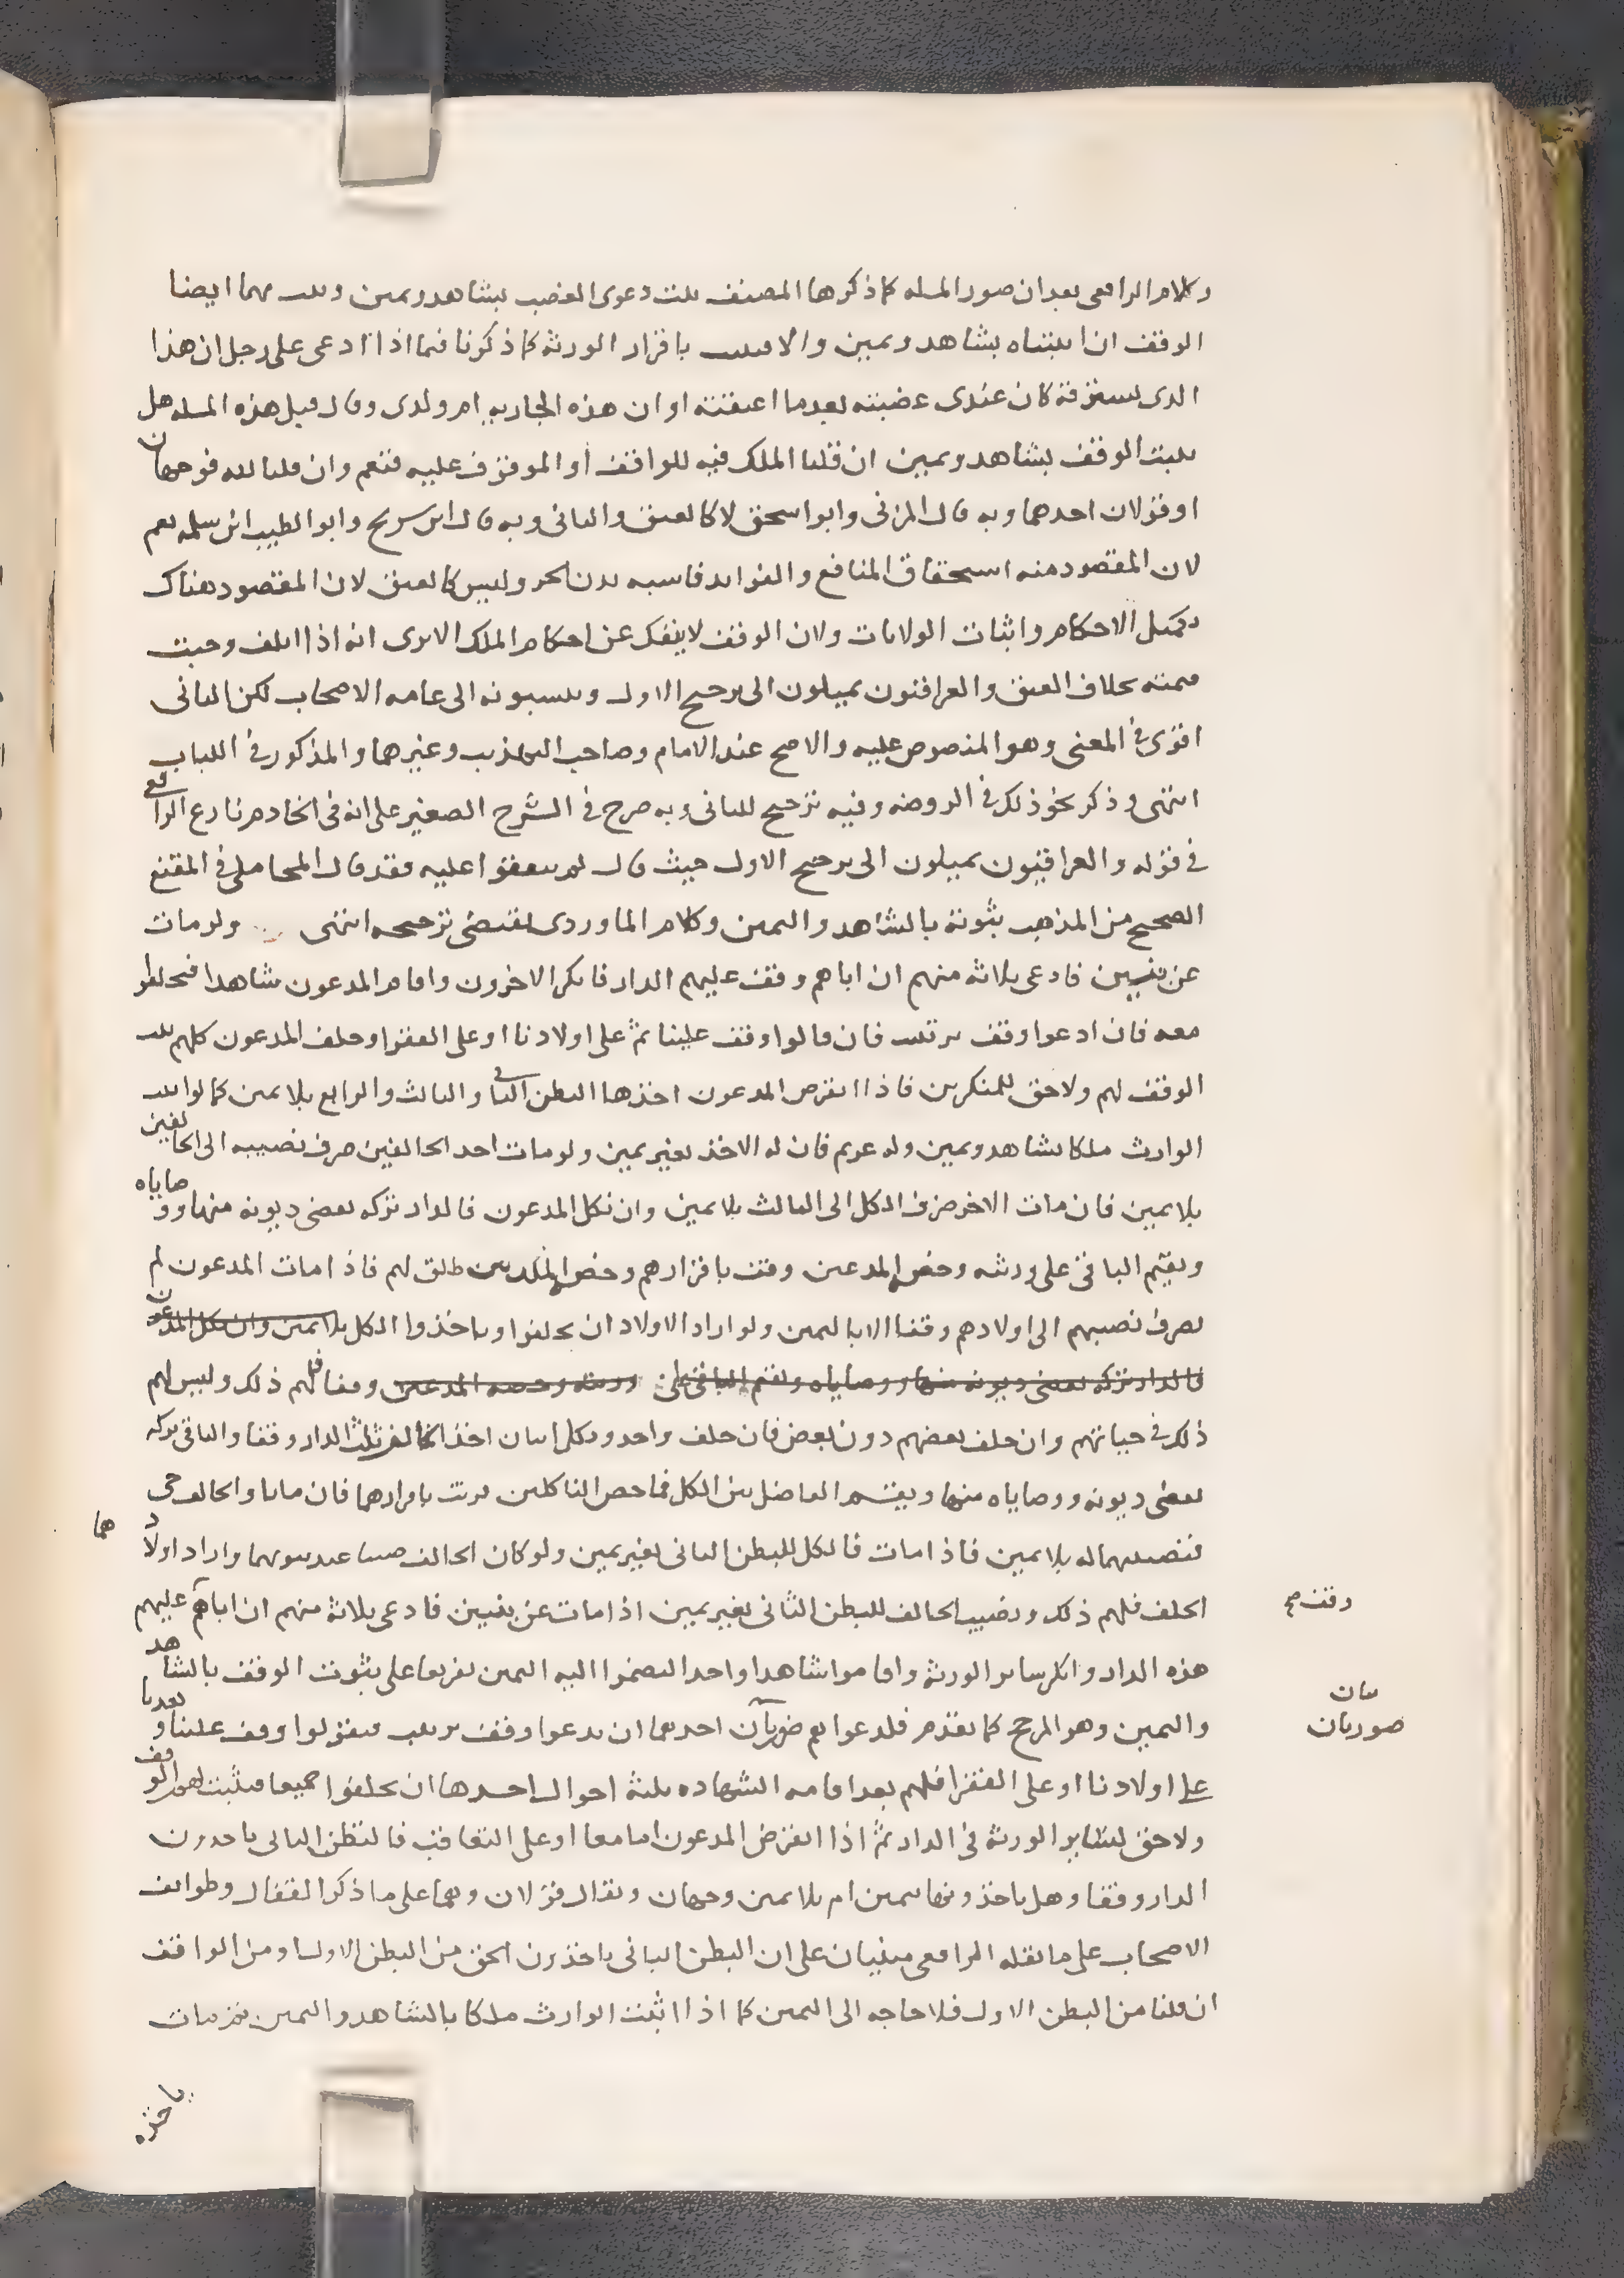 وكلام الرافعى بعد ان صور المسله كما ذكرها المصنف يثبت دعوى الغصب بشاهد ويمين ويثبت بهما ايضا
الوقف ان اثبتناه بشاهد ويمين والا فيثبت باقرار الورثة كما ذكرنا فيما اذا ادعى على رجل ان هذا
الذى يسترقه كان عندى غصبته بعد ما اعتقته او ان هذه الجاريه ام ولدى وقال قبل هذه المسله هل
يثبت الوقف بشاهد ويمين ان قلنا الملك فيه للواقف او الموقوف عليه فنعم وان قلنا لله فوجهان
او قولان احدهما وبه قال المزنى وابو اسحق لا كالعتق والثانى وبه قال ابن سريج وابو الطيب ابن سلمه نعم
لان المقصود منه استحقاق المنافع والفوايد فاشبه بدن الحر وليس كالعتق لان المقصود هناك
تكميل الاحكام واثبات الولايات ولان الوقف لا ينفك عن احكام الملك الا ترى انه اذا اتلف وجبت
قيمته بخلاف العتق والعراقيون يميلون الى ترجيح الاول وينسبونه الى عامه الاصحاب لكن الثانى
اقوى فى المعنى وهو المنصوص عليه والاصح عند الامام وصاحب التهذيب وغيرهما والمذكور فى اللباب
انتهى وذكر نحو ذلك فى الروضه وفيه ترجيح للثانى وبه صرح فى الشرح الصغير على انه فى الخادم نازع الرافعى
فى قوله والعراقيون يميلون الى ترجيح الاول حيث قال لم يتفقوا عليه فقد قال المحاملى فى المقنع
الصحيح من المذهب ثبوته بالشاهد واليمين وكلام الماوردى يقتضى ترجيحه انتهى ولو مات
عن بنين فادعى ثلاثة منهم ان اباهم وقف عليهم الدار فانكر الاخرون واقام المدعون شاهدا فيحلفوا
معه فان ادعوا وقف ترتيب فان قالوا وقف علينا ثم على اولادنا او على الفقرا وحلف المدعون كلهم ثبت
الوقف لهم ولا حق للمنكرين فاذا انقرض المدعون اخذها البطن الثانى والثالث والرابع بلا يمين كما لو اثبت
الوارث ملكا بشاهد ويمين وله غريم فان له الاخذ بغير يمين ولو مات احد الحالفين صرف نصيبه الى الحالفين
بلا يمين فان مات الاخر صرف الكل الى الثالث بلا يمين وان نكل المدعون فالدار تركه تقضى ديونه منها ووصاياه
ويقسم الباقى على ورثته وحصة المدعين وقف باقرارهم وحصة المنكرين طلق لهم فاذا مات المدعون لم
يصرف نصيبهم الى اولادهم وقفا الا باليمين ولو اراد الاولاد ان يحلفوا وياخذوا الكل بلا يمين وان نكل المدعون
فالدار تركه تقضى ديونه منها ووصاياه ويقسم الباقى على ورثته وحصه المدعين وقفا فلهم ذلك وليس لهم
ذلك فى حياتهم وان حلف بعضهم دون بعض فان حلف واحد ونكل اثنان اخذ الحالف ثلث الدار وقفا والباقى تركه
تقضى ديونه ووصاياه منها ويقسم الفاضل بين الكل فما خص الناكلين يوقف باقرارهما فان ماتا والحالف حى
فنصيبهما له بلا يمين فاذا مات فالكل للبطن الثانى بغير يمين ولو كان الحالف ميتا عند موتهما واراد اولادهما
الحلف فلهم ذلك ونصيب الحالف للبطن الثانى بغير يمين اذا مات عن بنين فادعى ثلاثة منهم ان اباهم عليهم
وقف صح
هذه الدار وانكر ساير الورثة واقاموا شاهدا واحدا ليضموا اليه اليمين تفريعا على ثبوت الوقف بالشاهد
واليمين وهو المرجح كما تقدم فلدعواهم صورتان احدهما ان يدعوا وقف ترتيب فيقولوا وقف علينا وبعدنا
بيان
صورتان
على اولادنا او على الفقرا فلهم بعد اقامه الشهاده ثلثة احوال احدها ان يحلفوا جميعا فيثبت لهم الوقف
ولا حق لساير الورثة فى الدار ثم اذا انقرض المدعون اما معا او على التعاقب فالبطن الثانى ياخذون
الدار وقفا وهل ياخذونها بيمين ام بلا يمين وجهان ويقال قولان وهما على ما ذكر القفال وطوايف
الاصحاب على ما نقله الرافعى مبنيان على ان البطن الثانى ياخذون الحق من البطن الاول او من الواقف
ان قلنا من البطن الاول فلا حاجه الى اليمين كما اذا اثبت الوارث ملكا بالشاهد واليمين ثم مات
ياخذه